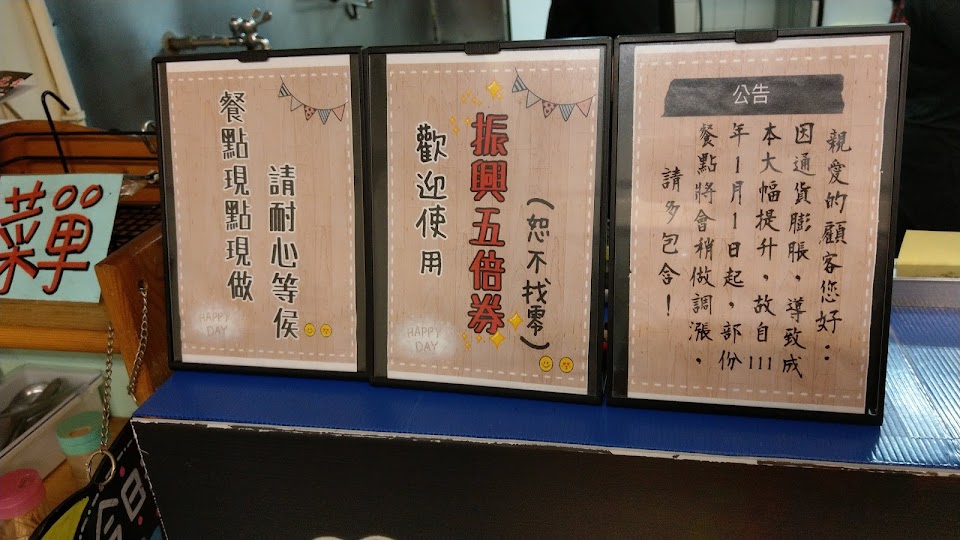 菜單
餐點現點現做
請耐心等侯
HAPPY
DAY
歡迎使用
振興五倍券
(恕不找零)
HAPPY
DAY
公告
親愛的顧客您好:
因通貨膨脹,導致成
本大幅提升,故自111
年1月1日起,部份
餐點將會稍做調漲。
請多包含!